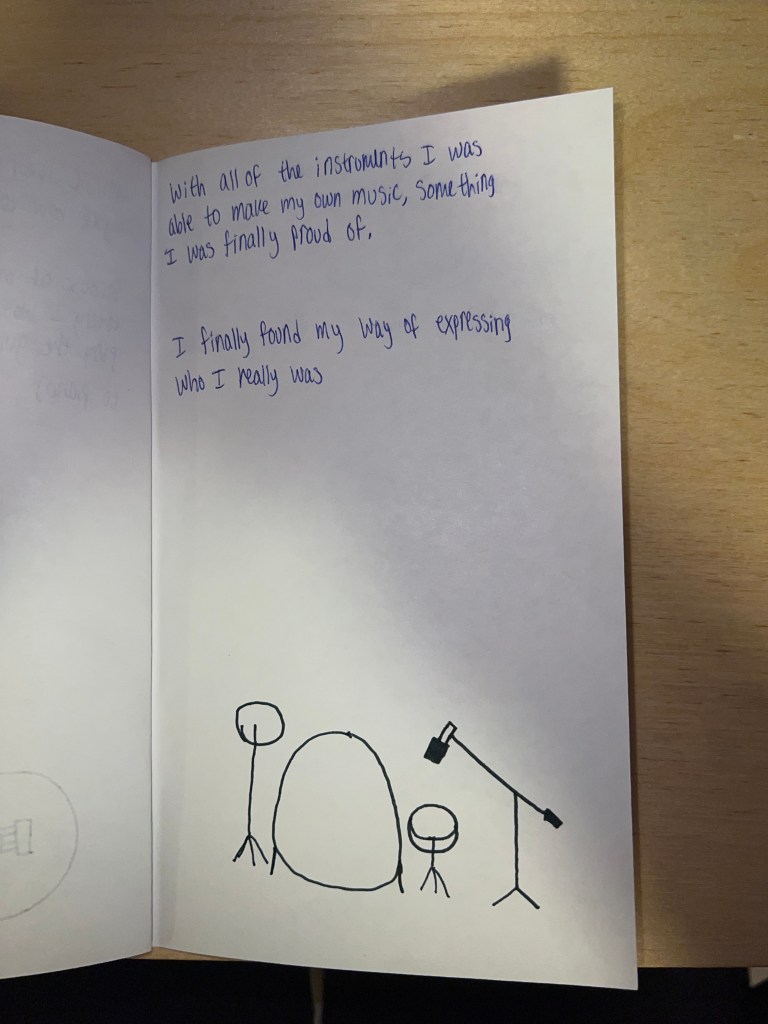 With all of the instruments I was
able to make my own music, something
I was finally proud of.
I finally found my way of expressing
who I really was